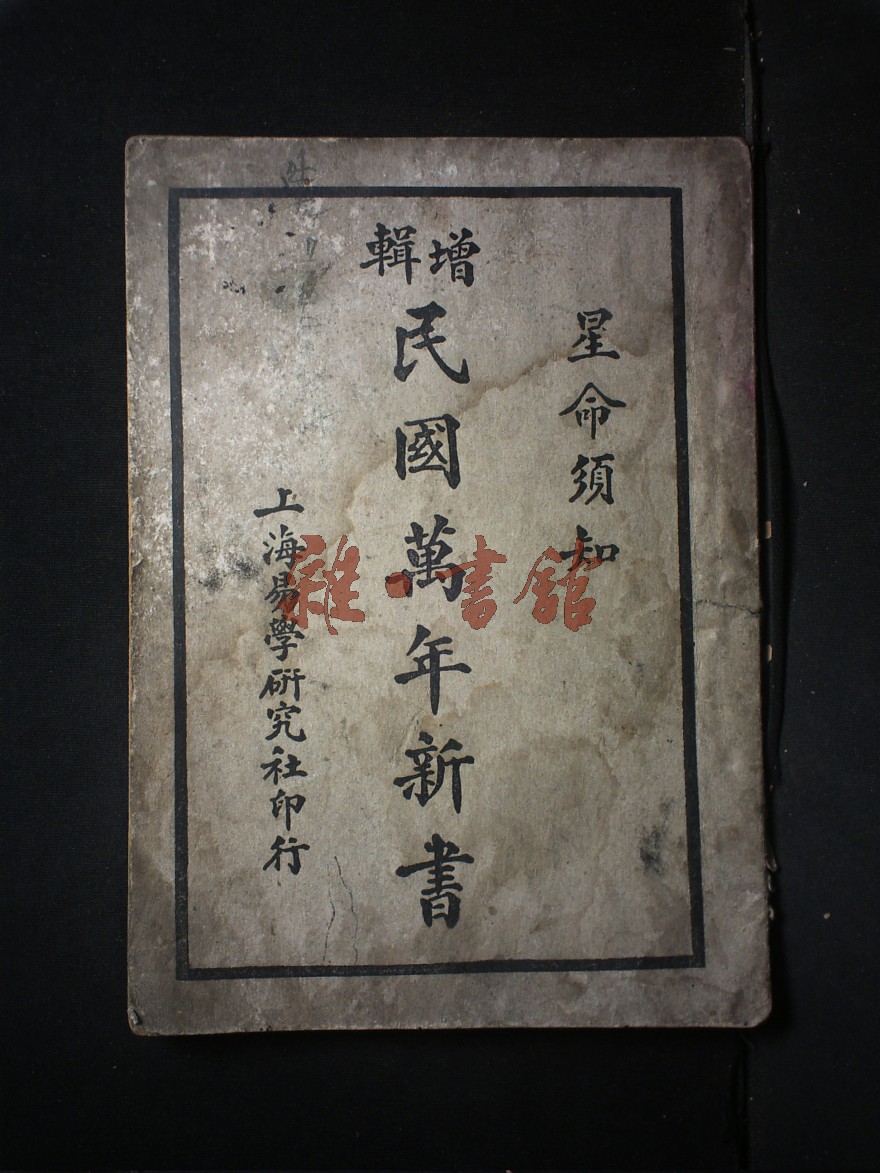 星命須知
增輯
民國萬年新書
上海易學研究社印行
雜·書館